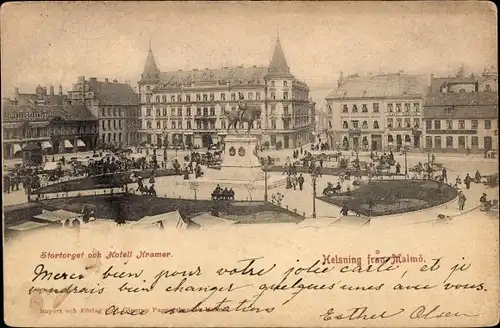 Stortorget och Hotell Kramer.
Helsning från Malmö.
Merci bien pour votre jolie carte, et je
voudrais bien changer quelques unes avec vous.
Avec salutations
Esther Olsen
Import och Förlag